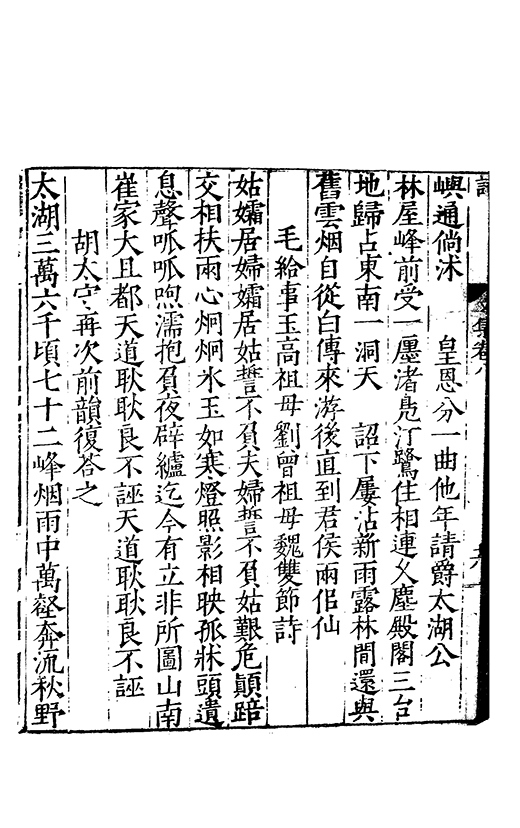 集卷八
嶼通倘沐　皇恩分一曲他年請爵太湖公
林屋峰前受一廛渚鳧汀鷺住相連久塵殿閣三台
地歸占東南一洞天　詔下屢沾新雨露林間還與
舊雲烟自從白傳來游後直到君侯兩侶仙
毛給事玉高祖母劉曾祖母魏雙節詩
姑孀居婦孀居姑誓不負夫婦誓不負姑艱危顛踣
交相扶兩心炯炯氷玉如寒燈照影相映孤牀頭遺
息聲呱呱喣濡抱負夜辟纑迄今有立非所圖山南
崔家大且都天道耿耿良不誣天道耿耿良不誣
胡太守再次前韻復荅之
太湖三萬六千頃七十二峰烟雨中萬壑奔流秋野